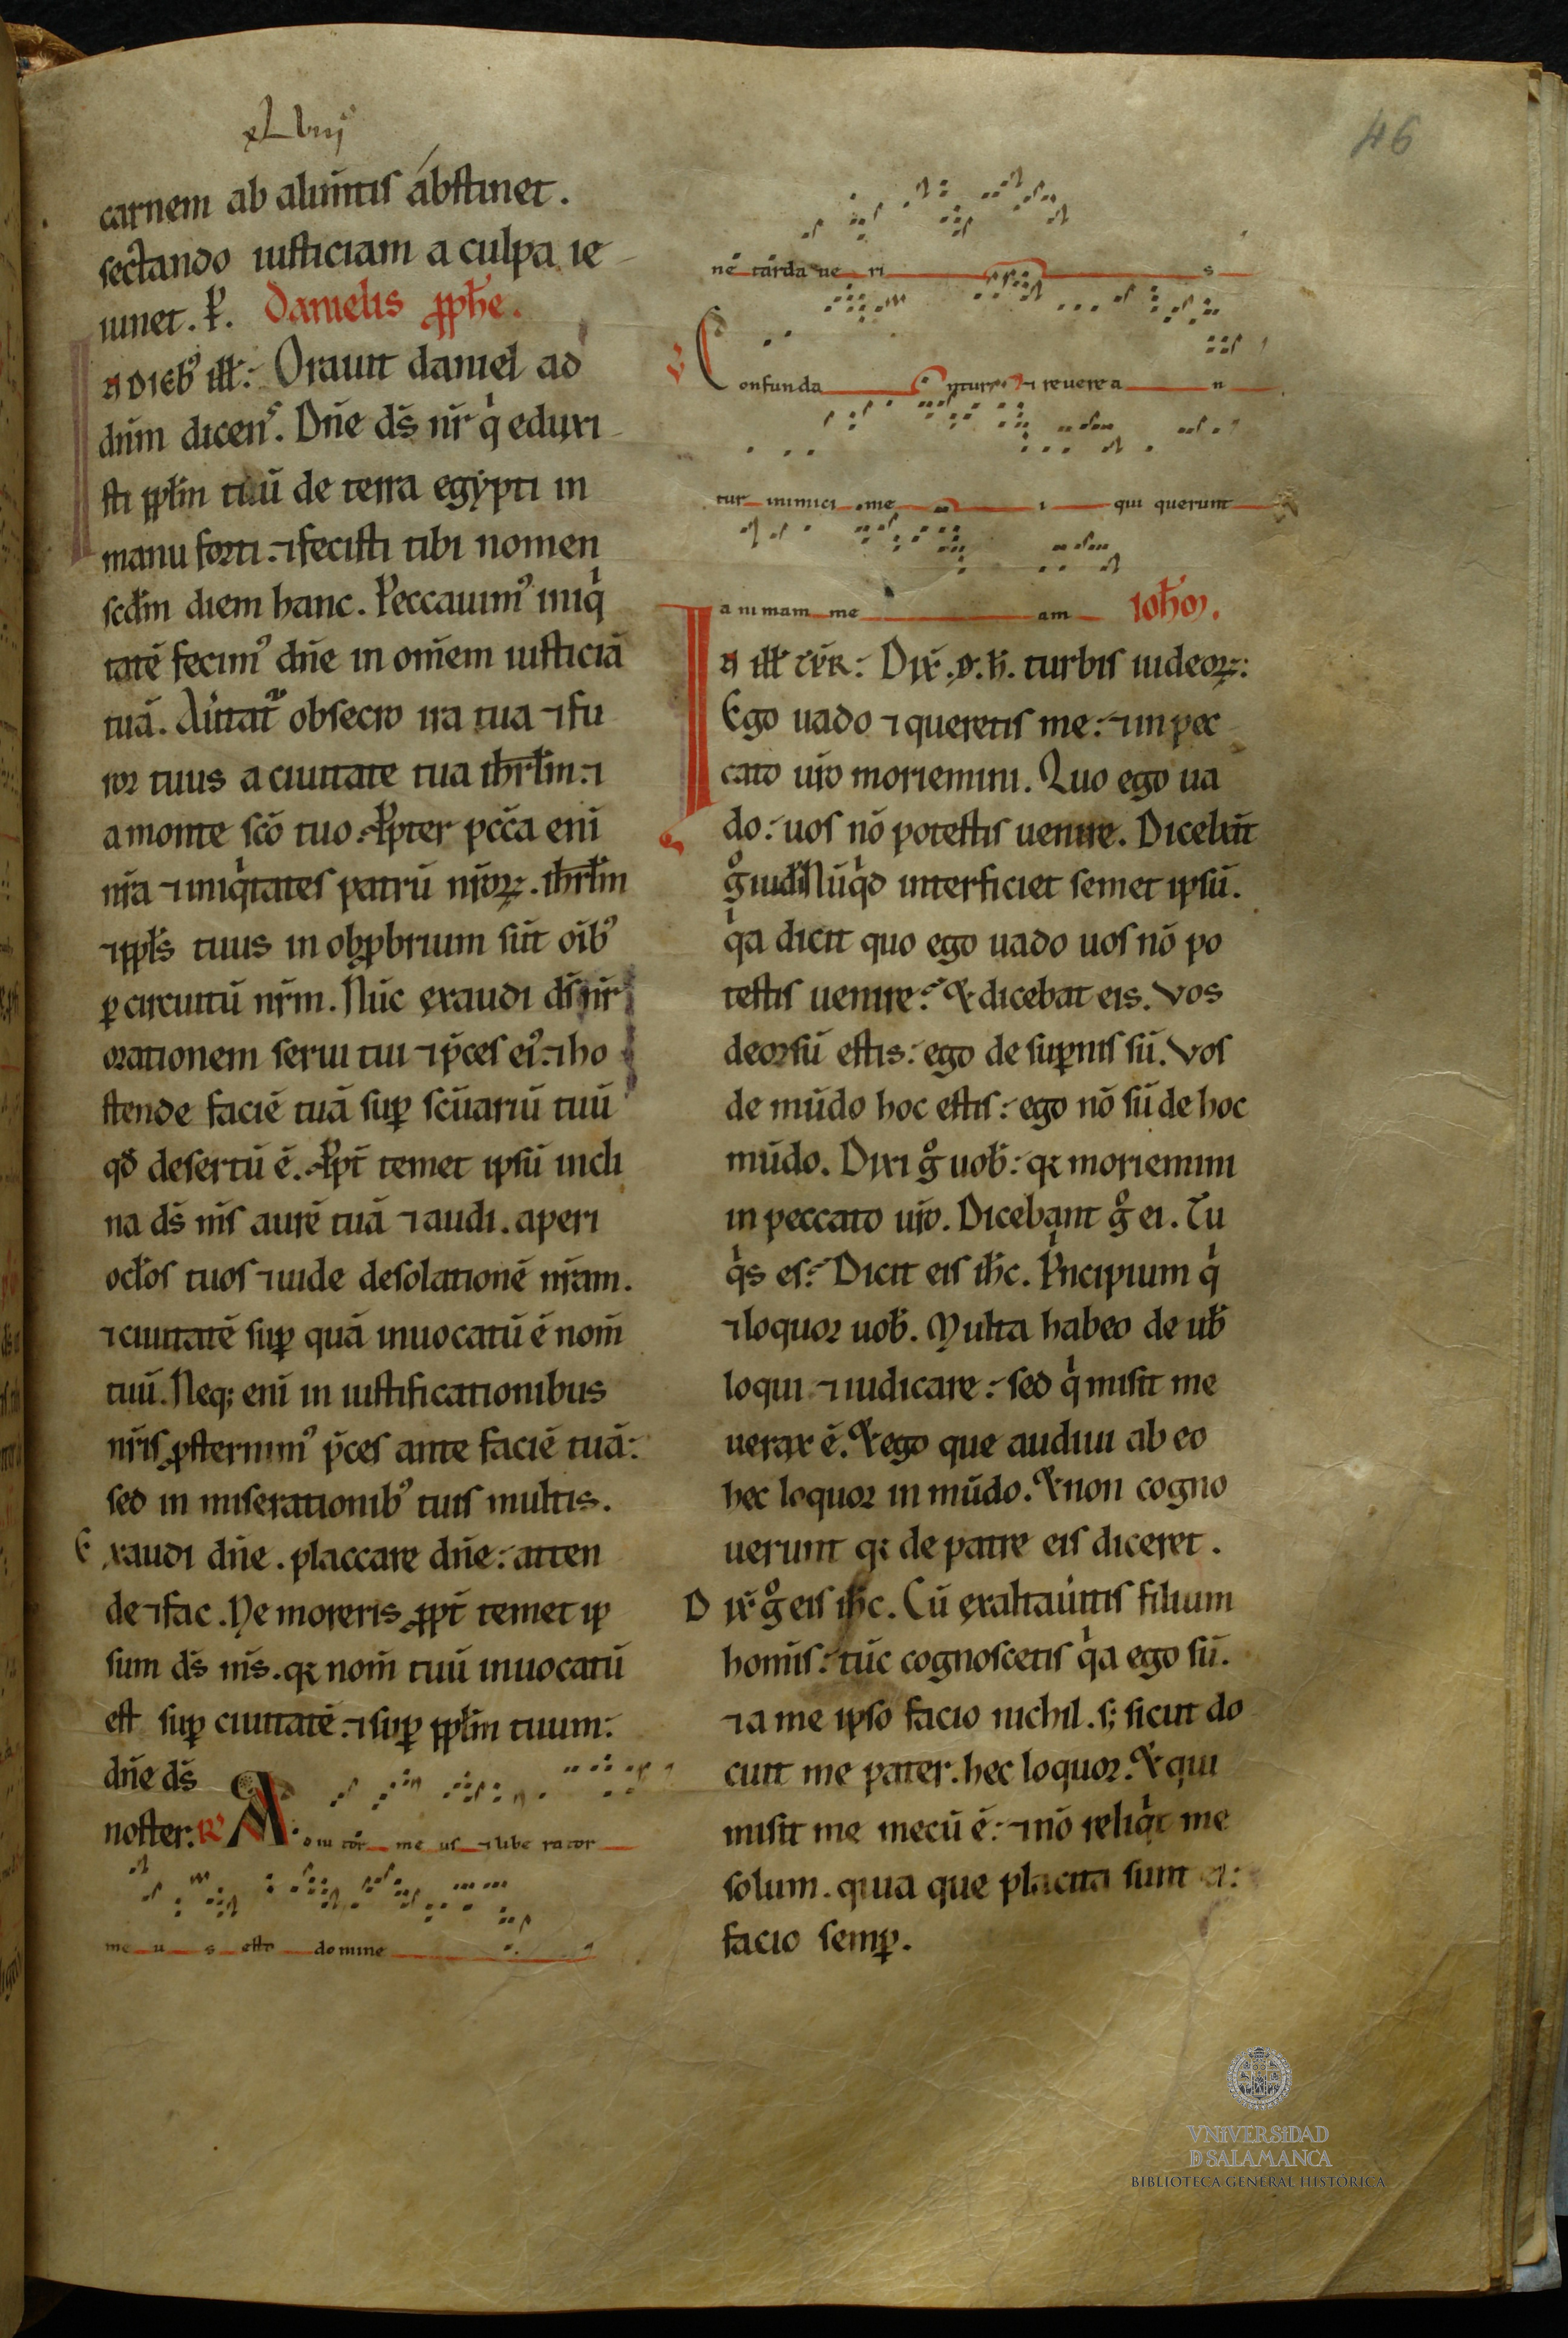 xLviij
46
carnem ab alim̄tis abstinet.
sectando iusticiam a culpa ie
iunet. P̲. Danielis ꝓph̄e.
N dieb᷒ ill̄: Orauit daniel ad
dn̄m dicens. Dn̄e ds̄ nr̄ qͥ eduxi
sti ppl̄m tuū de terra egypti in
manu forti. ⁊ fecisti tibi nomen
scd̄m diem hanc. Peccauim᷒ iniqͥ
tatē fecim᷒ dn̄e in om̄em iusticiā
tuā. Au̇tat̄ᷓ obsecro ira tua ⁊ fu
ror tuus a ciuitate tua ihrl̄m. ⁊
a monte scō tuo. Ꝓpter pcc̄a enī
nr̄a ⁊ iniqͥtates patrū nr̄oꝝ. ihrl̄m
⁊ ppl̄s tuus in obꝓbrium sūt oīb᷒
ꝑ circuitū nr̄m. Nūc exaudi ds̄ nr̄
orationem serui tui ⁊ p̄ces ei᷒. ⁊ ho
stende faciē tuā suꝑ scūariū tuū
qđ desertū ē. Ꝓpt̄ temet ipsū incli
na ds̄ ms̄ aurē tuā ⁊ audi. aperi
ocl̄os tuos ⁊ uide desolationē nr̄am.
⁊ ciuitatē suꝑ quā inuocatū ē nom̄
tuū. Neq; enī in iustificationibus
nr̄is ꝓsternim᷒ p̄ces ante faciē tuā:
sed in miserationib᷒ tuis multis.
Exaudi dn̄e. placcare dn̄e: atten
de ⁊ fac. Ne moreris ꝓpt̄ temet ip
sum ds̄ ms̄. qꝛ nom̄ tuū inuocatū
est suꝑ ciuitatē. ⁊ suꝑ ppl̄m tuum:
dn̄e ds̄
noster: R᷒ A diu tor me us ⁊ libe rator
me u s esto domine
nē tarda ue ri s
V Confunda ntur ⁊ reuerea n
tur inimici me i qui querunt
animam me am Ioh̄m.
IN ill̄ tp̄R: Dix̄. d̄. h̄. turbis iudeoꝝ:
Ego uado ⁊ queretis me: ⁊ in pec
cato ur̄o moriemini. Quo ego ua
do: uos nō potestis uenire. Dicebāt
gͦ iud̄i Nūqͥd interficiet semet ipsū.
qͥa dicit quo ego uado uos nō po
testis uenire? & dicebat eis. Vos
deorsū estis: ego de suꝑnis sū. Vos
de mūdo hoc estis: ego nō sū de hoc
mūdo. Dixi gͦ uob̄: qꝛ moriemini
in peccato ur̄o. Dicebant gͦ ei. Tu
qͥs es? Dicit eis ih̄c. Pͥncipium qͥ
⁊ loquor uob̄. Multa habeo de ub̄
loqui ⁊ iudicare: sed qͥ misit me
uerax ē. & ego que audiui ab eo
hec loquor in mūdo. & non cogno
uerunt qꝛ de patre eis diceret.
Dix̄ gͦ eis ih̄c. Cū exaltau̇itis filium
homīs: tūc cognoscetis qͥa ego sū.
⁊ a me ipso facio nichil. s; sicut do
cuit me pater. hec loquor. & qui
misit me mecū ē: ⁊ nō reliqͥt me
solum. quia que placita sunt ei:
facio semꝑ.
VNIVERSIDAD
D SALAMANCA
BIBLIOTECA GENERAL HISTÓRICA